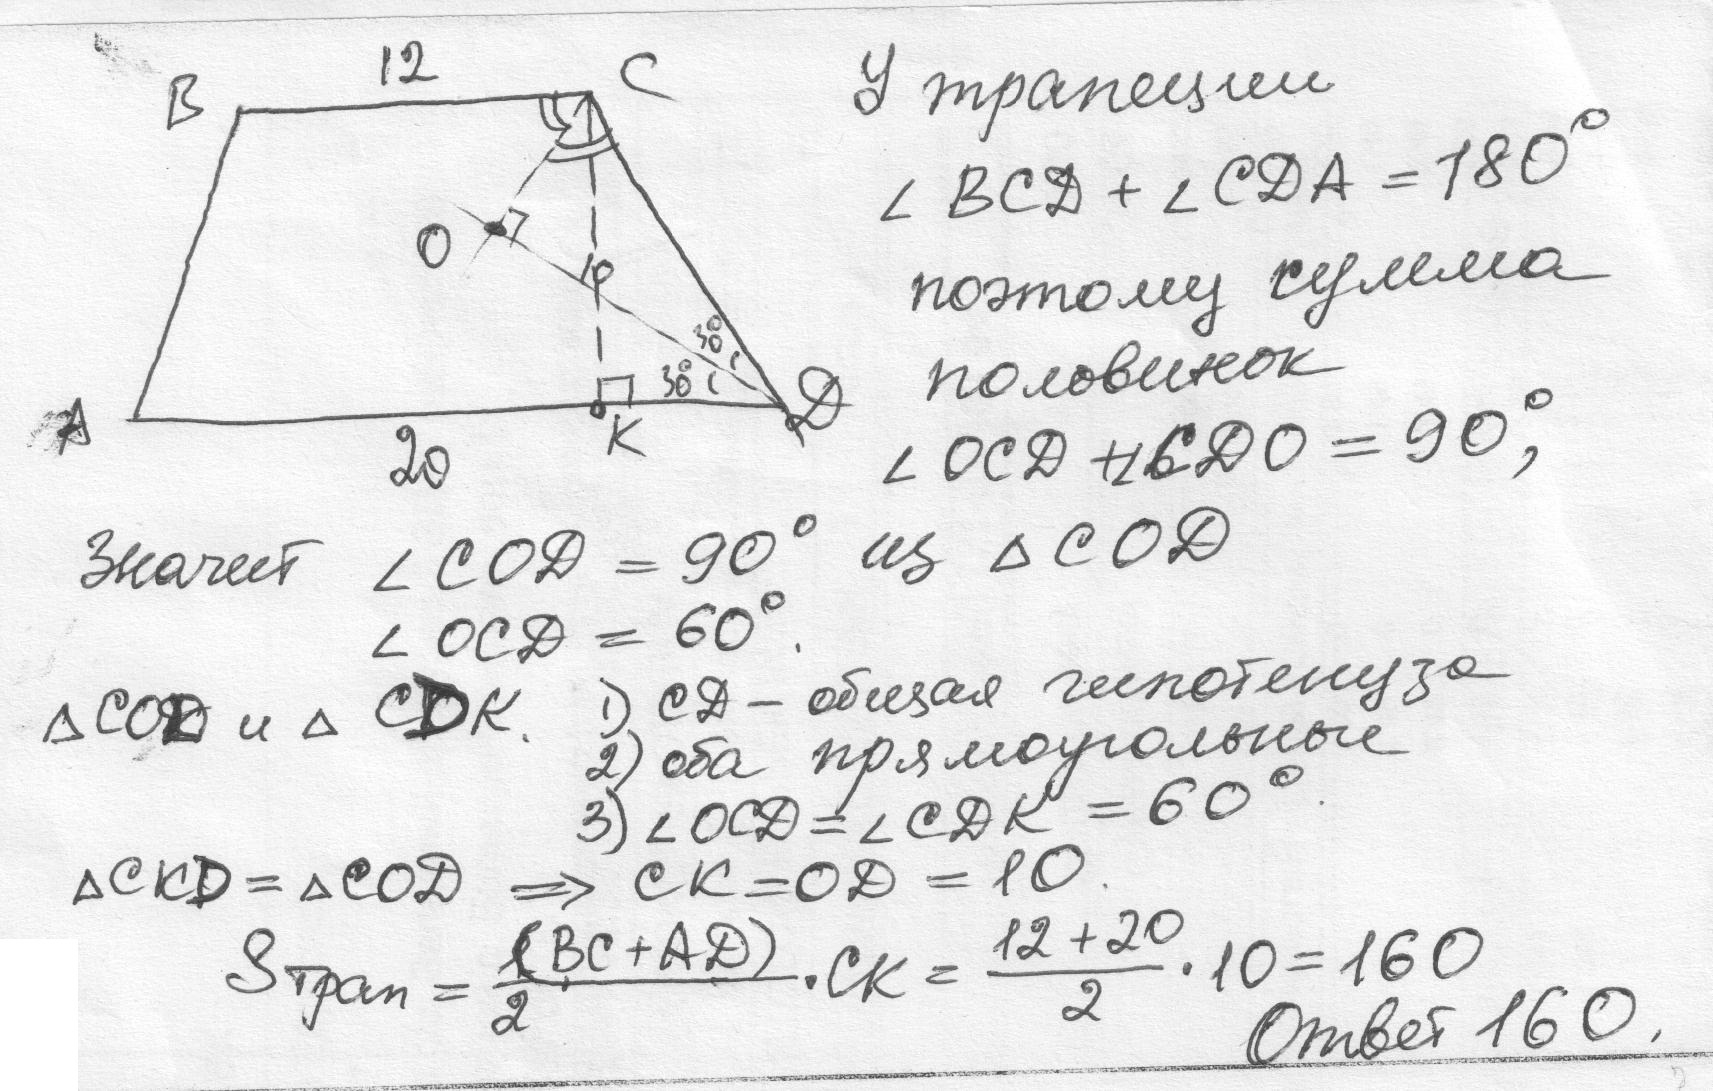 12
B
C
O
10
30°
30°
A
K
D
20
У трапеции
∠ BCD + ∠ CDA = 180°
поэтому сумма
половинок
∠ OCD + ∠ CDO = 90°;
Значит ∠ COD = 90° из △ COD
∠ OCD = 60°.
△ COD и △ CDK. 1) CD – общая гипотенуза
2) оба прямоугольные
3) ∠ OCD = ∠ CDK = 60°.
△ CKD = △ COD ⇒ CK = OD = 10.
Sтрап = (BC + AD)/2 · CK = 12 + 20/2 · 10 = 160
Ответ 160.